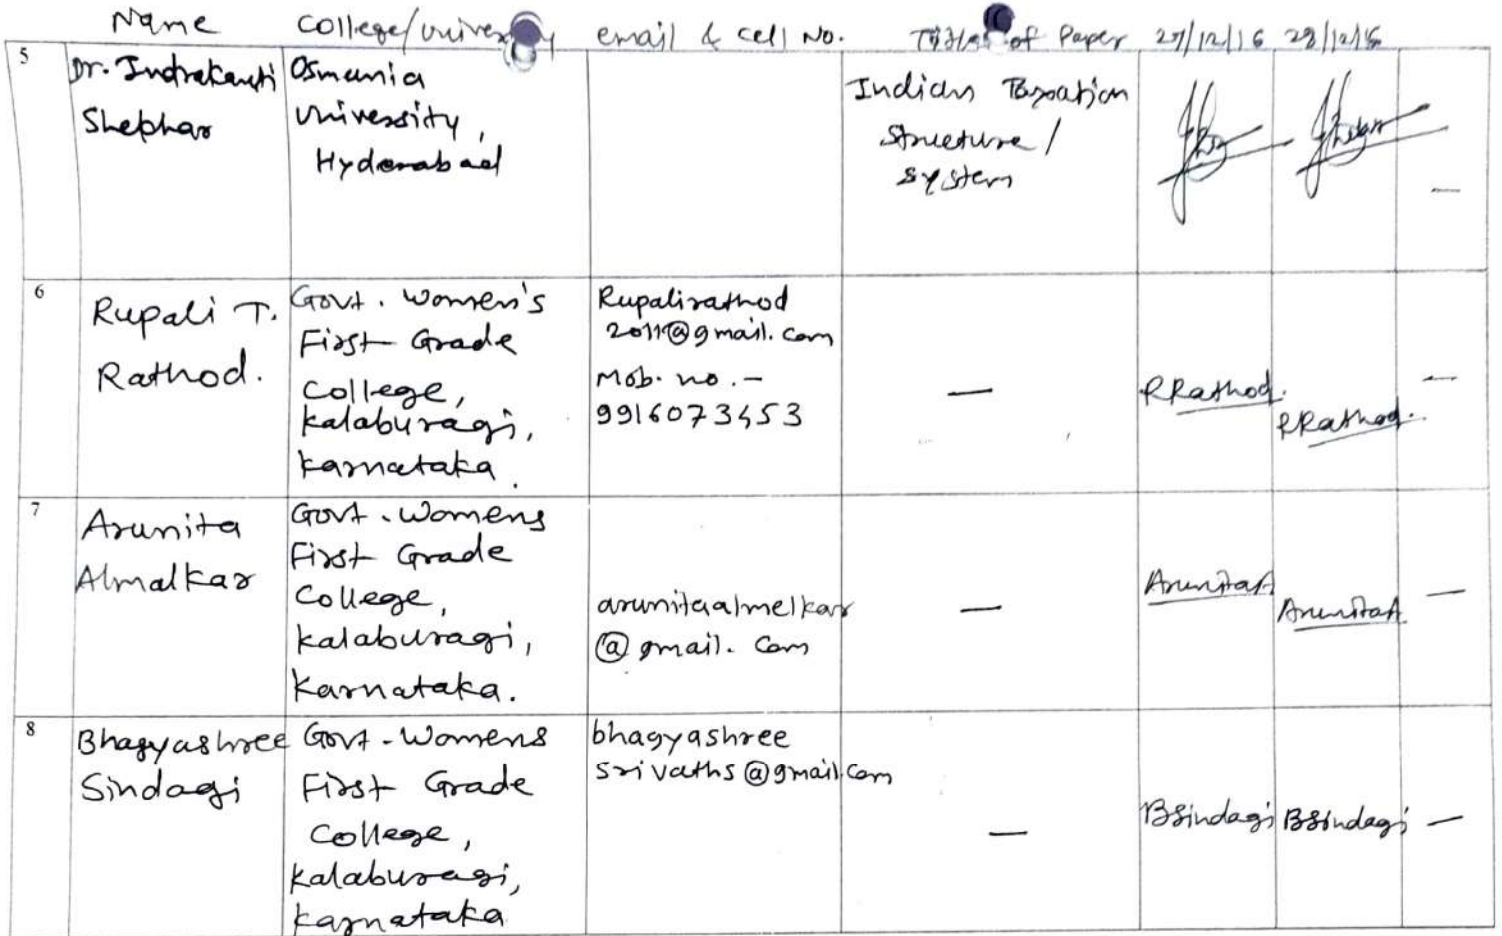 Name College/University email & cell No. Titles of Paper 27/12/16 28/12/16
5
Dr. Indrakanti
Shekhar
Osmania
University,
Hyderabad
Indian Taxation
Structure/
System
—
6
Rupali T.
Rathod.
Govt. Women's
First Grade
College,
Kalaburagi,
Karnataka.
Rupalirathod
2011@gmail.com
Mob. no. -
9916073453
—
RRathod.
RRathod.
—
7
Arunita
Almalkar
Govt. Womens
First Grade
College,
Kalaburagi,
Karnataka.
arunitaalmelkar
@gmail.com
—
ArunitaA
ArunitaA
—
8
Bhagyashree
Sindagi
Govt. Womens
First Grade
College,
Kalaburagi,
Karnataka
bhagyashree
srivaths@gmail.com
—
BSindagi
BSindagi
—